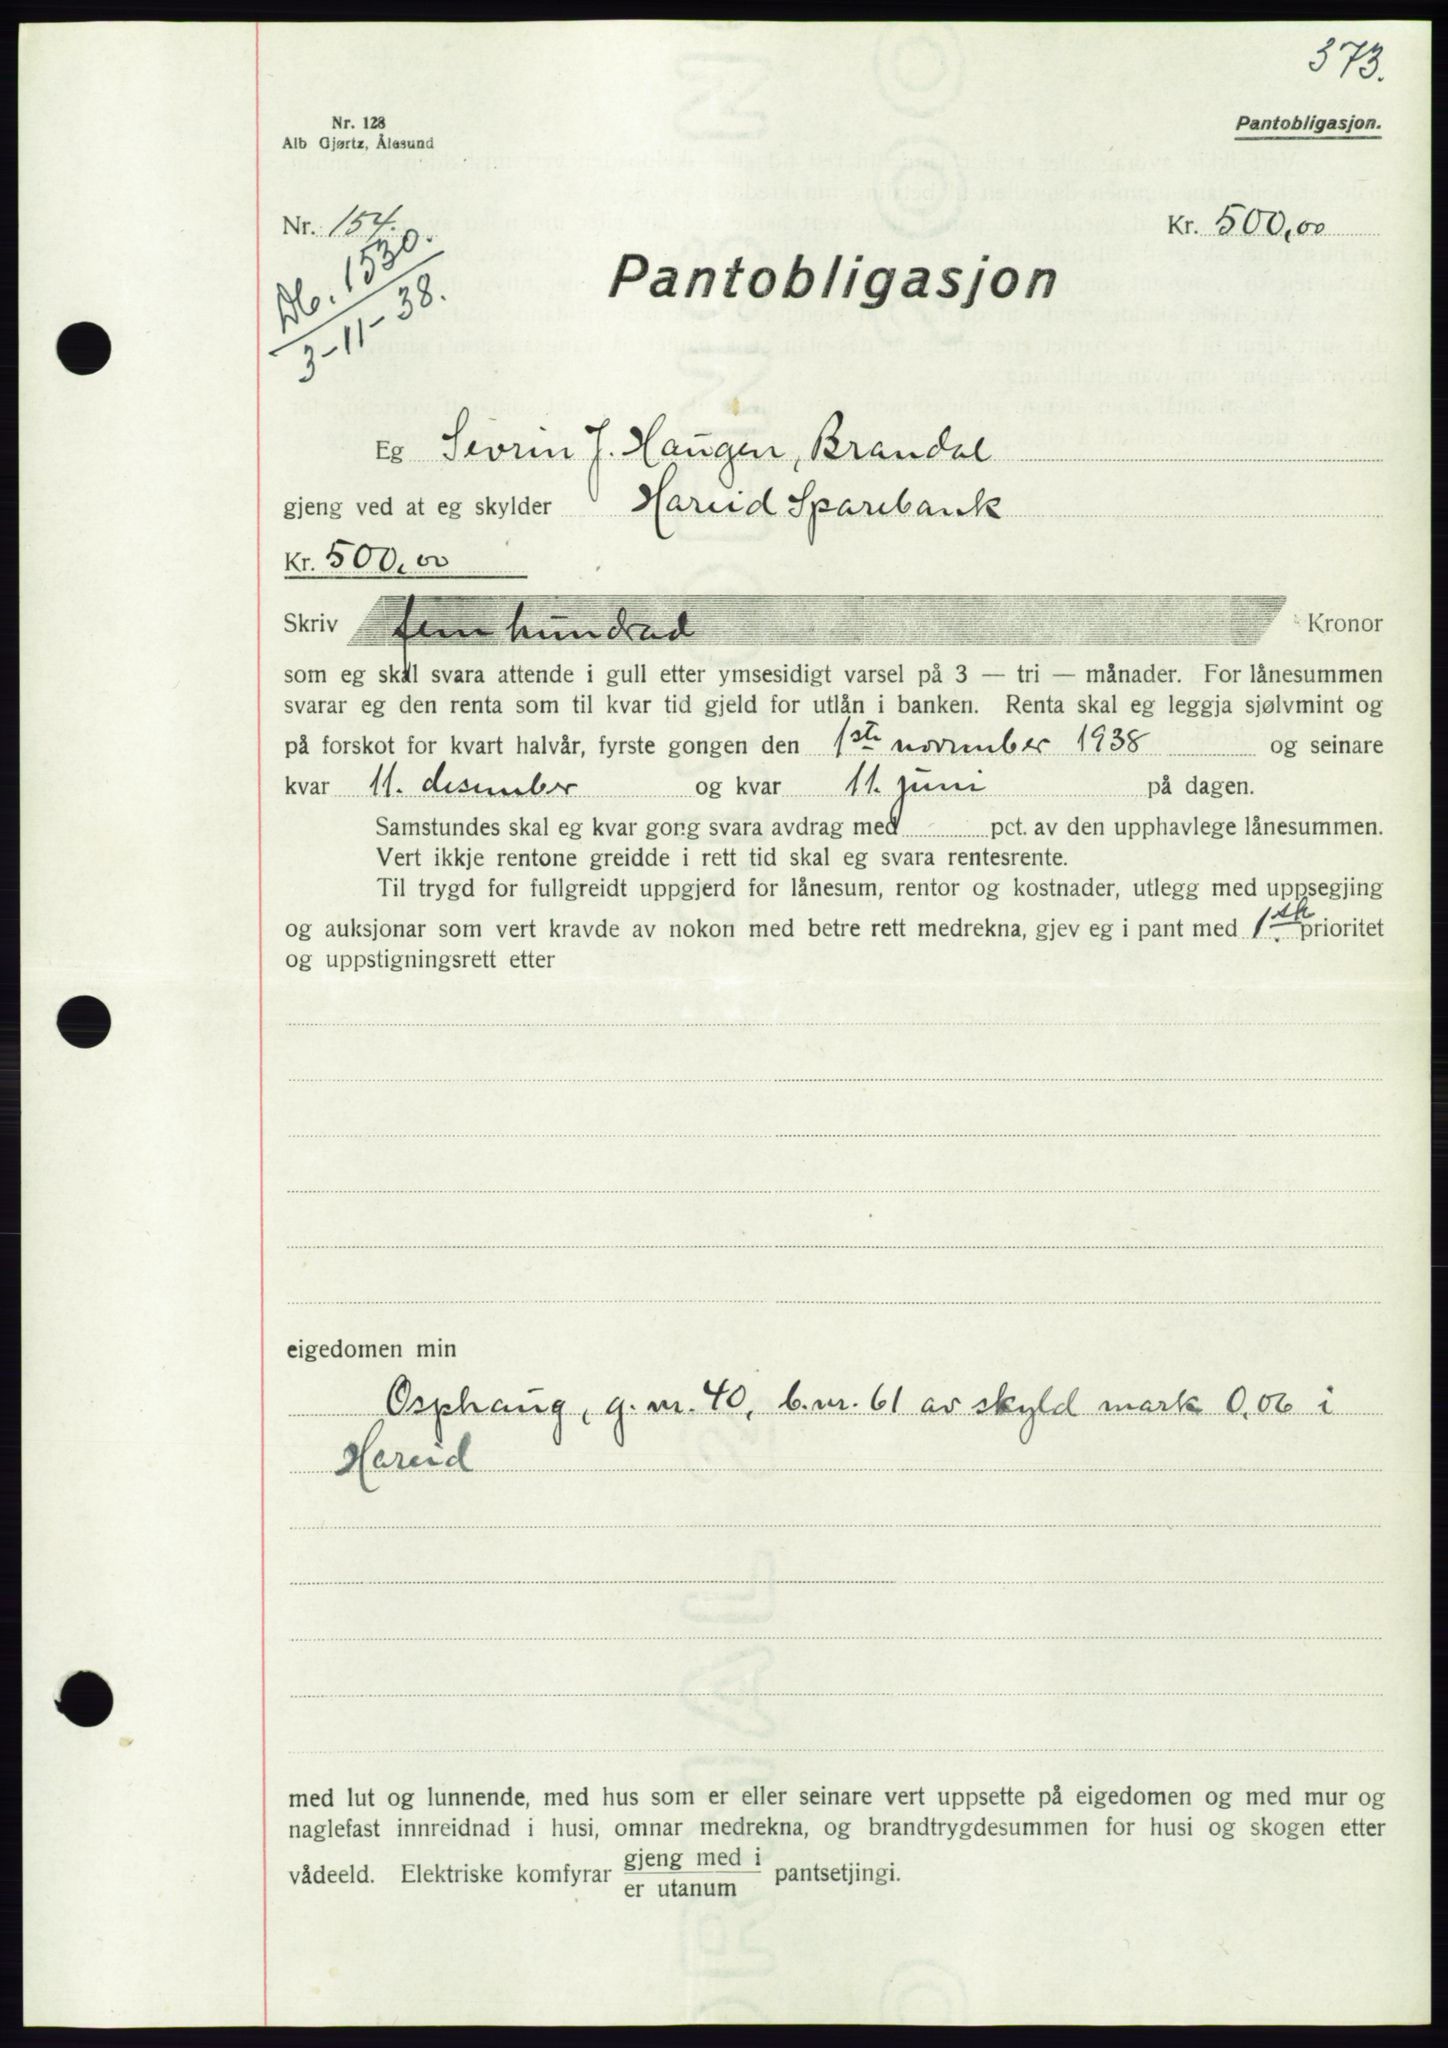 373.
Nr. 128
Alb Gjørtz, Ålesund
Pantobligasjon.
Nr. 154.
Kr. 500,00
Db. 1530.
3-11-38.
Pantobligasjon
Eg Sevrin J. Haugen, Brandal
gjeng ved at eg skylder Hareid Sparebank
Kr. 500,00
Skriv fem hundrad Kronor
som eg skal svara attende i gull etter ymsesidigt varsel på 3 — tri — månader. For lånesummen
svarar eg den renta som til kvar tid gjeld for utlån i banken. Renta skal eg leggja sjølvmint og
på forskot for kvart halvår, fyrste gongen den 1ste november 1938 og seinare
kvar 11. desember og kvar 11. juni på dagen.
Samstundes skal eg kvar gong svara avdrag med pct. av den upphavlege lånesummen.
Vert ikkje rentone greidde i rett tid skal eg svara rentesrente.
Til trygd for fullgreidt uppgjerd for lånesum, rentor og kostnader, utlegg med uppsegjing
og auksjonar som vert kravde av nokon med betre rett medrekna, gjev eg i pant med 1ste prioritet
og uppstigningsrett etter
eigedomen min
Osphaug, g.nr. 40, b.nr. 61 av skyld mark 0,06 i
Hareid
med lut og lunnende, med hus som er eller seinare vert uppsette på eigedomen og med mur og
naglefast innreidnad i husi, omnar medrekna, og brandtrygdesummen for husi og skogen etter
vådeeld. Elektriske komfyrar gjeng med i pantsetjingi.
er utanum